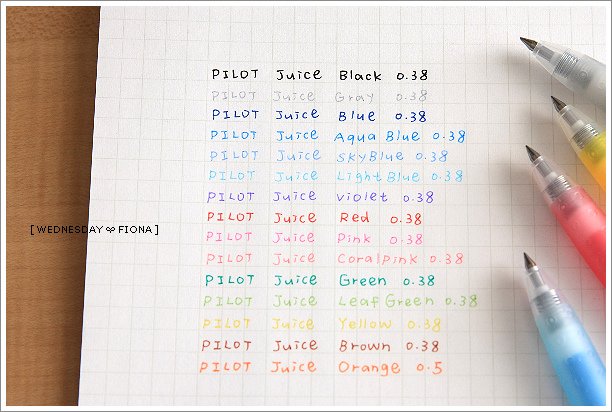 PILOT Juice Black 0.38
PILOT Juice Gray 0.38
PILOT Juice Blue 0.38
PILOT Juice Aqua Blue 0.38
PILOT Juice SkyBlue 0.38
PILOT Juice LightBlue 0.38
PILOT Juice violet 0.38
PILOT Juice Red 0.38
[ WEDNESDAY FIONA ]
PILOT Juice Pink 0.38
PILOT Juice Coralpink 0.38
PILOT Juice Green 0.38
PILOT Juice Leaf Green 0.38
PILOT Juice Yellow 0.38
PILOT Juice Brown 0.38
PILOT Juice Orange 0.5